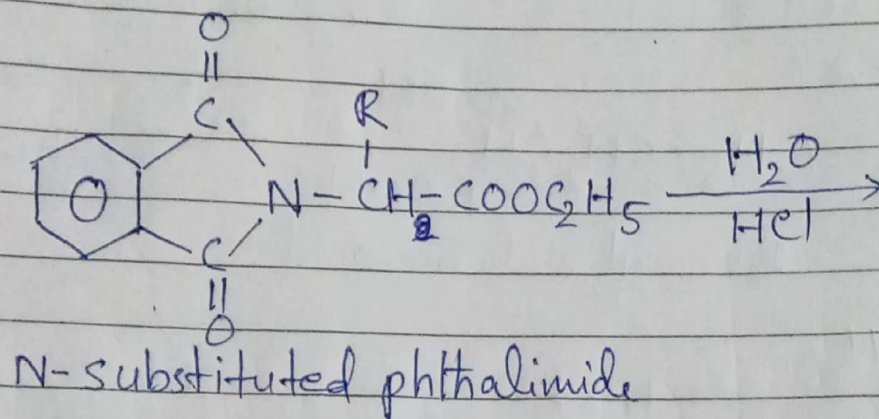 O
||
C R
O N-CH-COOC2H5 H2O
HCl
C
||
O
N-substituted phthalimide